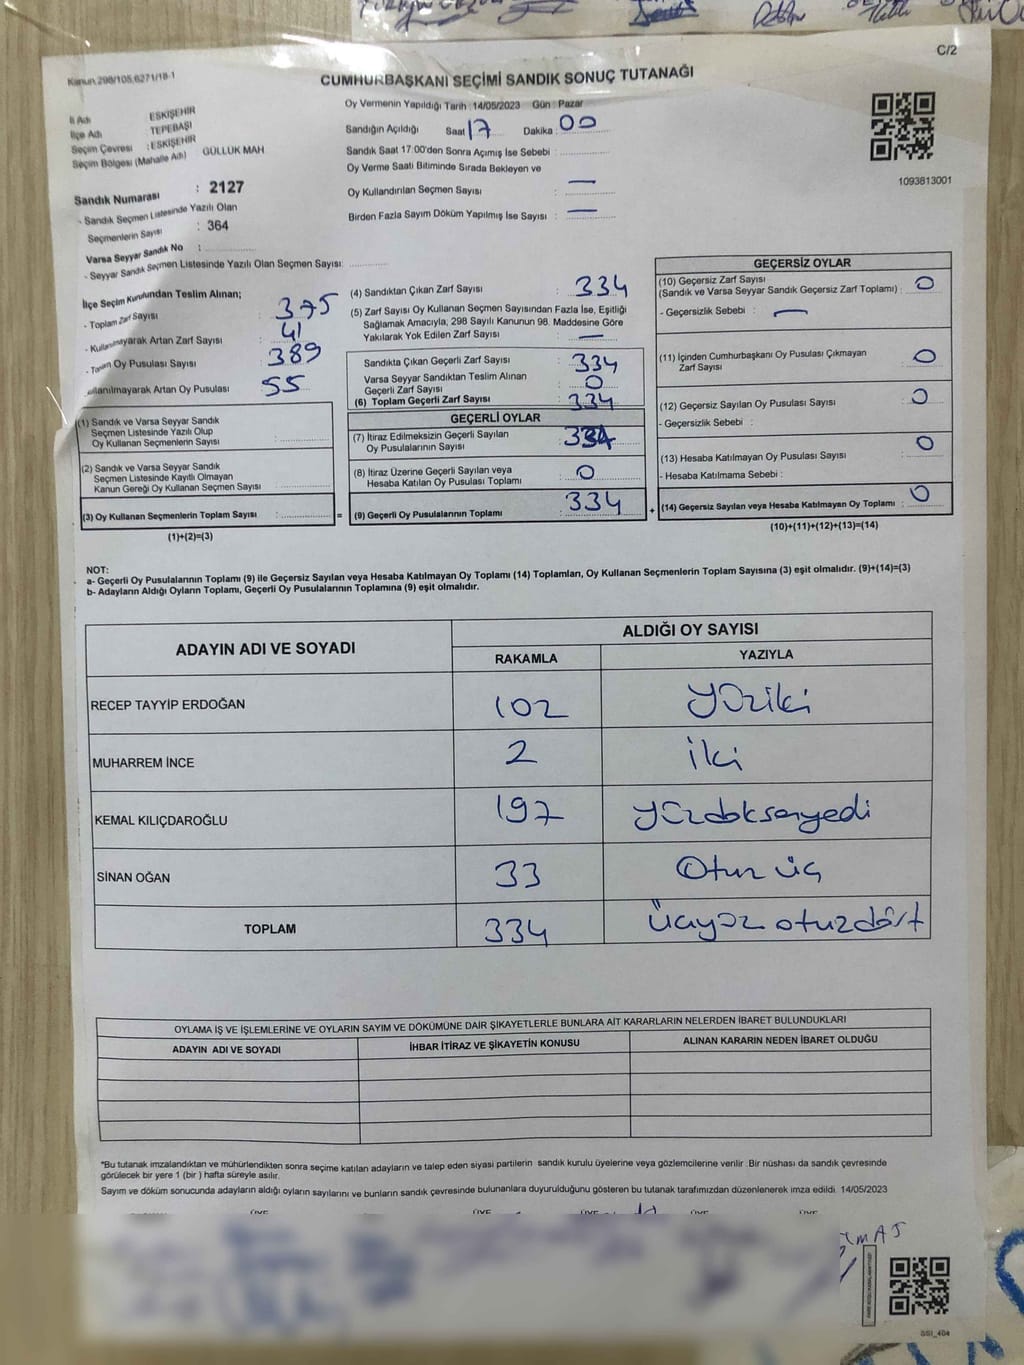 C/2
Kanun 298/105,6271/18-1
CUMHURBAŞKANI SEÇİMİ SANDIK SONUÇ TUTANAĞI
İl Adı : ESKİŞEHİR
İlçe Adı : TEPEBAŞI
Seçim Çevresi : ESKİŞEHİR
Seçim Bölgesi (Mahalle Adı) GÜLLÜK MAH
Sandık Numarası : 2127
- Sandık Seçmen Listesinde Yazılı Olan
Seçmenlerin Sayısı : 364
Varsa Seyyar Sandık No :
- Seyyar Sandık Seçmen Listesinde Yazılı Olan Seçmen Sayısı:
Oy Vermenin Yapıldığı Tarih : 14/05/2023 Gün : Pazar
Sandığın Açıldığı Saat 17 Dakika : 00
Sandık Saat 17:00'den Sonra Açımış İse Sebebi :
Oy Verme Saati Bitiminde Sırada Bekleyen ve
Oy Kullandırılan Seçmen Sayısı : —
Birden Fazla Sayım Döküm Yapılmış İse Sayısı : —
1093813001
İlçe Seçim Kurulundan Teslim Alınan;
- Toplam Zarf Sayısı : 375
- Kullanılmayarak Artan Zarf Sayısı : 41
- Toplam Oy Pusulası Sayısı 389
Kullanılmayarak Artan Oy Pusulası 55
(1) Sandık ve Varsa Seyyar Sandık
Seçmen Listesinde Yazılı Olup
Oy Kullanan Seçmenlerin Sayısı :
(2) Sandık ve Varsa Seyyar Sandık
Seçmen Listesinde Kayıtlı Olmayan
Kanun Gereği Oy Kullanan Seçmen Sayısı :
(3) Oy Kullanan Seçmenlerin Toplam Sayısı : =
(1)+(2)=(3)
(4) Sandıktan Çıkan Zarf Sayısı : 334
(5) Zarf Sayısı Oy Kullanan Seçmen Sayısından Fazla İse, Eşitliği
Sağlamak Amacıyla, 298 Sayılı Kanunun 98. Maddesine Göre
Yakılarak Yok Edilen Zarf Sayısı : —
Sandıkta Çıkan Geçerli Zarf Sayısı : 334
Varsa Seyyar Sandıktan Teslim Alınan
Geçerli Zarf Sayısı : 0
(6) Toplam Geçerli Zarf Sayısı : 334
GEÇERLİ OYLAR
(7) İtiraz Edilmeksizin Geçerli Sayılan
Oy Pusulalarının Sayısı : 334
(8) İtiraz Üzerine Geçerli Sayılan veya
Hesaba Katılan Oy Pusulası Toplamı : 0
(9) Geçerli Oy Pusulalarının Toplamı : 334 +
GEÇERSİZ OYLAR
(10) Geçersiz Zarf Sayısı
(Sandık ve Varsa Seyyar Sandık Geçersiz Zarf Toplamı) : 0
- Geçersizlik Sebebi : —
(11) İçinden Cumhurbaşkanı Oy Pusulası Çıkmayan
Zarf Sayısı : 0
(12) Geçersiz Sayılan Oy Pusulası Sayısı : 0
- Geçersizlik Sebebi :
(13) Hesaba Katılmayan Oy Pusulası Sayısı : 0
- Hesaba Katılmama Sebebi :
(14) Geçersiz Sayılan veya Hesaba Katılmayan Oy Toplamı : 0
(10)+(11)+(12)+(13)=(14)
NOT:
a- Geçerli Oy Pusulalarının Toplamı (9) ile Geçersiz Sayılan veya Hesaba Katılmayan Oy Toplamı (14) Toplamları, Oy Kullanan Seçmenlerin Toplam Sayısına (3) eşit olmalıdır. (9)+(14)=(3)
b- Adayların Aldığı Oyların Toplamı, Geçerli Oy Pusulalarının Toplamına (9) eşit olmalıdır.
ADAYIN ADI VE SOYADI ALDIĞI OY SAYISI
RAKAMLA YAZIYLA
RECEP TAYYİP ERDOĞAN 102 Yüziki
MUHARREM İNCE 2 iki
KEMAL KILIÇDAROĞLU 197 yüzdoksanyedi
SİNAN OĞAN 33 Otuz üç
TOPLAM 334 Üçyüz otuzdört
OYLAMA İŞ VE İŞLEMLERİNE VE OYLARIN SAYIM VE DÖKÜMÜNE DAİR ŞİKAYETLERLE BUNLARA AİT KARARLARIN NELERDEN İBARET BULUNDUKLARI
ADAYIN ADI VE SOYADI İHBAR İTİRAZ VE ŞİKAYETİN KONUSU ALINAN KARARIN NEDEN İBARET OLDUĞU
*Bu tutanak imzalandıktan ve mühürlendikten sonra seçime katılan adayların ve talep eden siyasi partilerin sandık kurulu üyelerine veya gözlemcilerine verilir. Bir nüshası da sandık çevresinde
görülecek bir yere 1 (bir) hafta süreyle asılır.
Sayım ve döküm sonucunda adayların aldığı oyların sayılarını ve bunların sandık çevresinde bulunanlara duyurulduğunu gösteren bu tutanak tarafımızdan düzenlenerek imza edildi. 14/05/2023
ÜYE ÜYE ÜYE ÜYE ÜYE
SSI_404